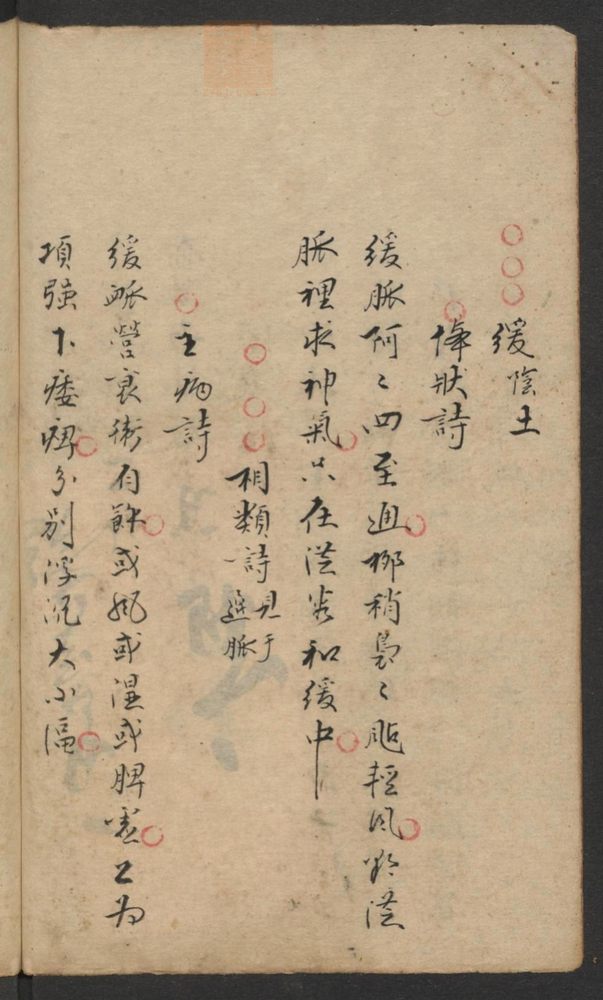 緩陰土
体狀詩
緩脈阿〻四至通柳梢裊〻颭輕風欲從
脈裡求神氣只在從容和緩中
相類詩見于遲脈
主病詩
緩脈營衰衛有餘或風或濕或脾虛上為
項强下痿痺分別浮沉大小區